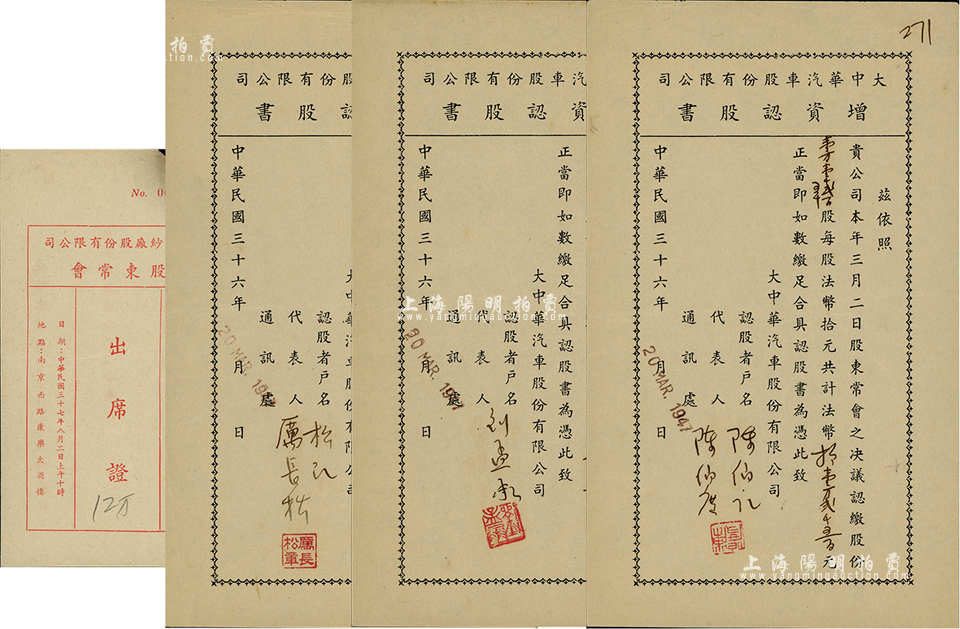 271
大中華汽車股份有限公司
增資認股書
茲依照
貴公司本年三月二日股東常會之決議認繳股份
股每股法幣拾元共計法幣
元
正當即如數繳足合具認股書為憑此致
大中華汽車股份有限公司
認股者戶名
代表人
陳伯
通訊處
中華民國三十六年 月 日
20 MAR. 1947
汽車股份有限公司
資認股書
正當即如數繳足合具認股書為憑此致
大中華汽車股份有限公司
認股者戶名
代表人
通訊處
中華民國三十六年 月 日
20 MAR. 1947
股份有限公司
認股書
大中華汽車股份有限公司
認股者戶名
松記
代表人
厲長松
通訊處
中華民國三十六年 月 日
20 MAR. 194
厲長松章
No. 0
紗廠股份有限公司
股東常會
出席證
12万
日期：中華民國三十七年八月二日上午十時
地點：南京西路康樂大酒樓
上海陽明拍賣
www.yangmingauction.com
上海陽明拍賣
www.yangmingauction.com
拍賣
auction.com